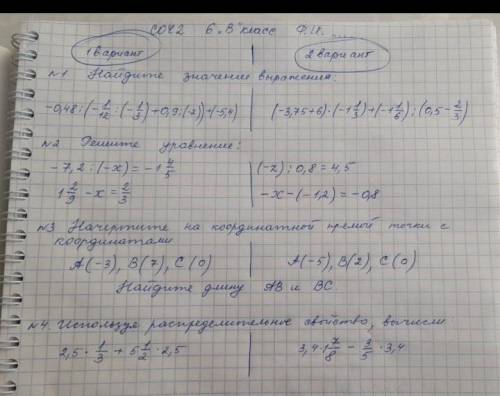 СОЧ2 6 „В" класс Ф.И. ....
1 вариант 2 вариант
№1 Найдите значение выражения:
-0,48 : (-1/12 : (-1/3) + 0,9 : (-2)) + (-5,4) (-3,75+6) · (-1 1/3) + (-1 1/6) : (0,5 - 2/3)
№2 Решите уравнение:
-7,2 : (-x) = -1 4/5 (-z) : 0,8 = 4,5
1 2/9 - x = 2/3 -x - (-1,2) = -0,8
№3 Начертите на координатной прямой точки с
координатами
A(-3), B(7), C(0) A(-5), B(2), C(0)
Найдите длину AB и BC.
№4. Используя распределительное свойство, вычисли
2,5 · 1/3 + 5 1/2 · 2,5 3,4 · 1 7/8 - 3/5 · 3,4